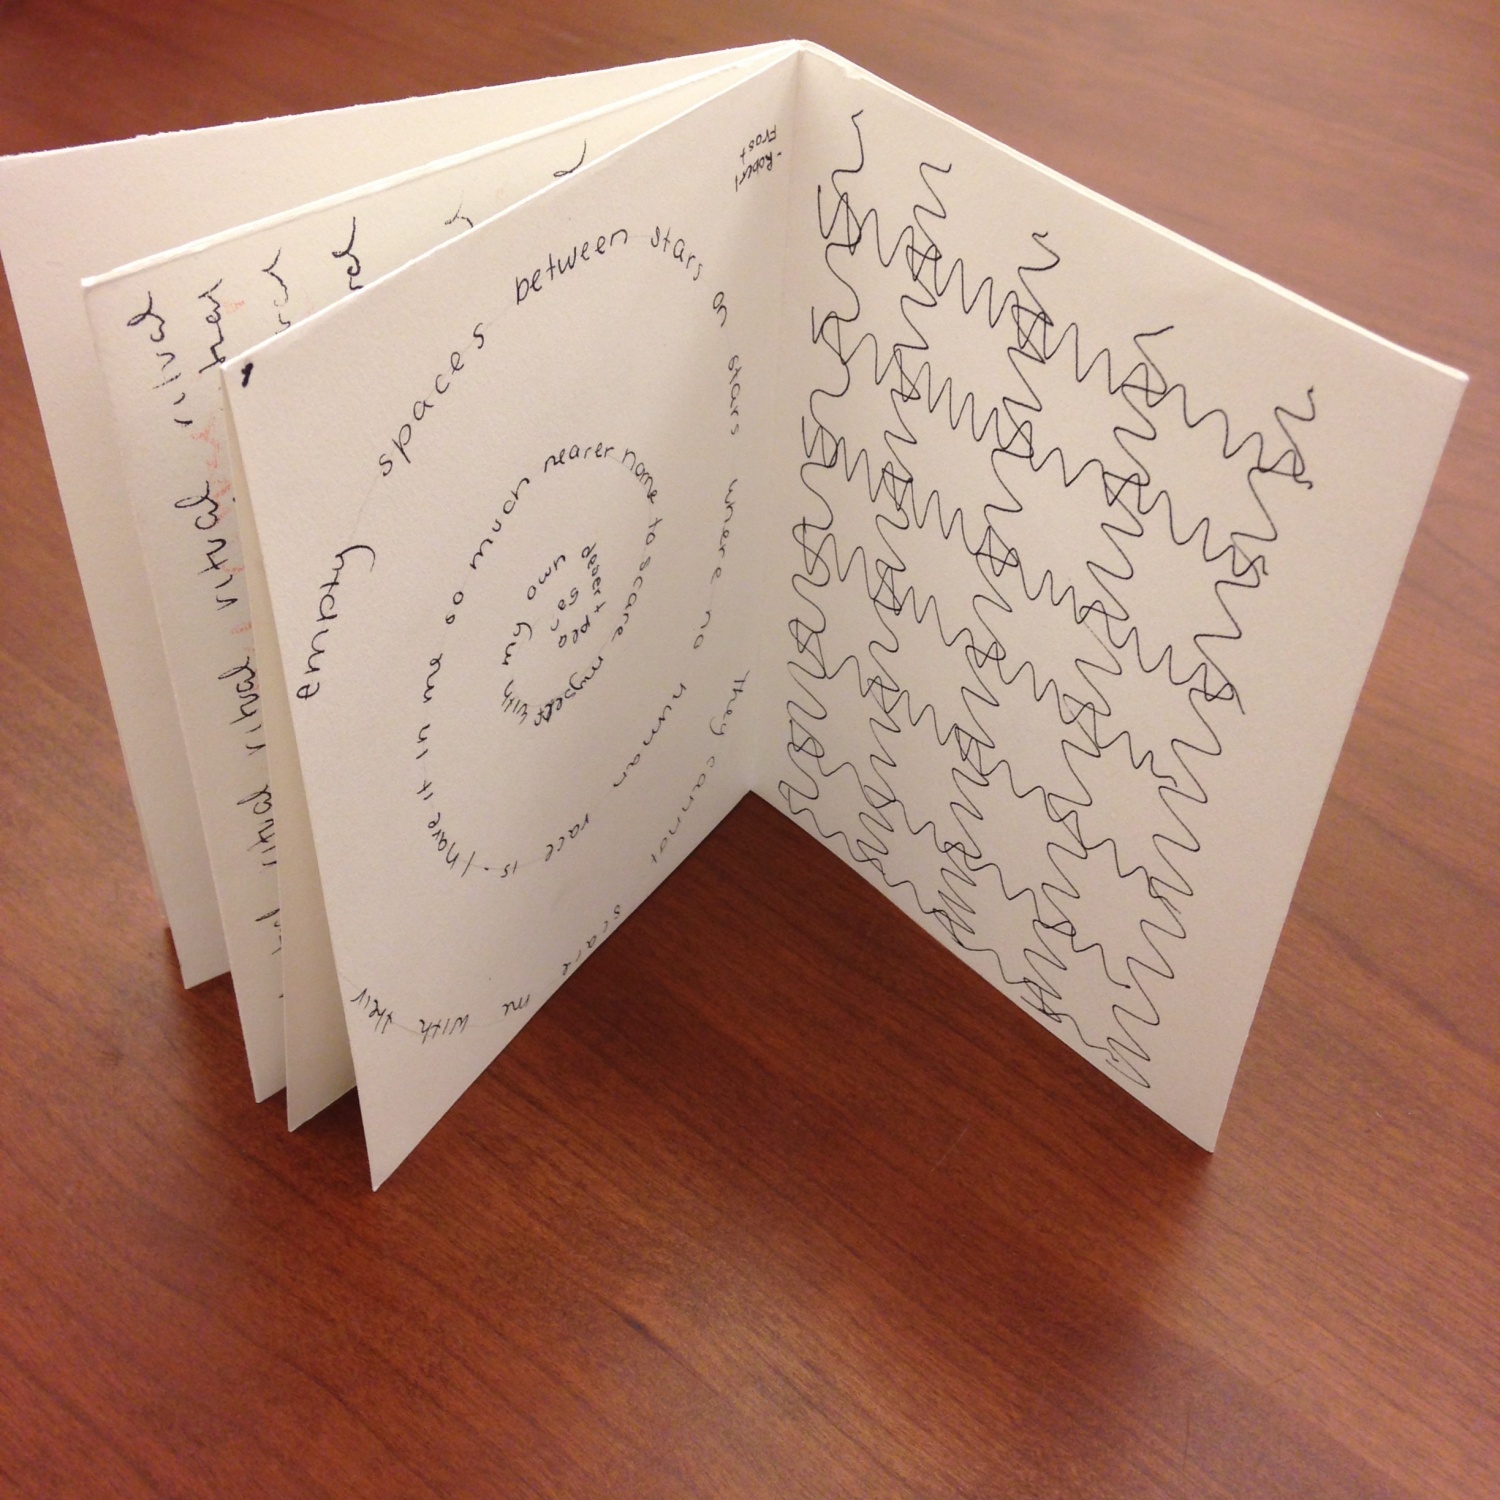 ritual ritual ritual
ritual ritual ritual
they cannot scare me with their empty spaces between stars stars where no human race is. I have it in me so much nearer home to scare myself with my own desert places
-Robert
Frost